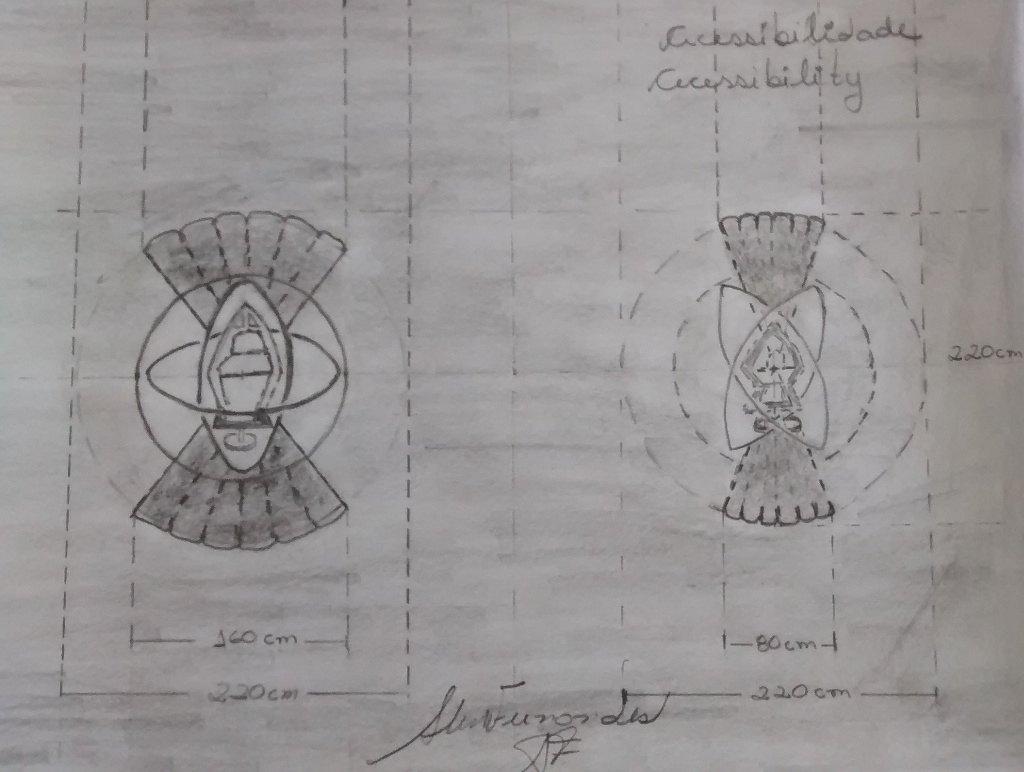 Acessibilidade
Acessibility
220cm
160cm
80cm
220cm
220cm